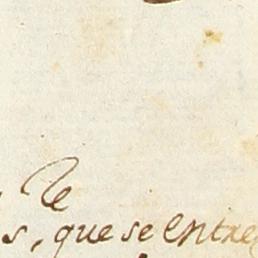 , Ze
s, que se entre